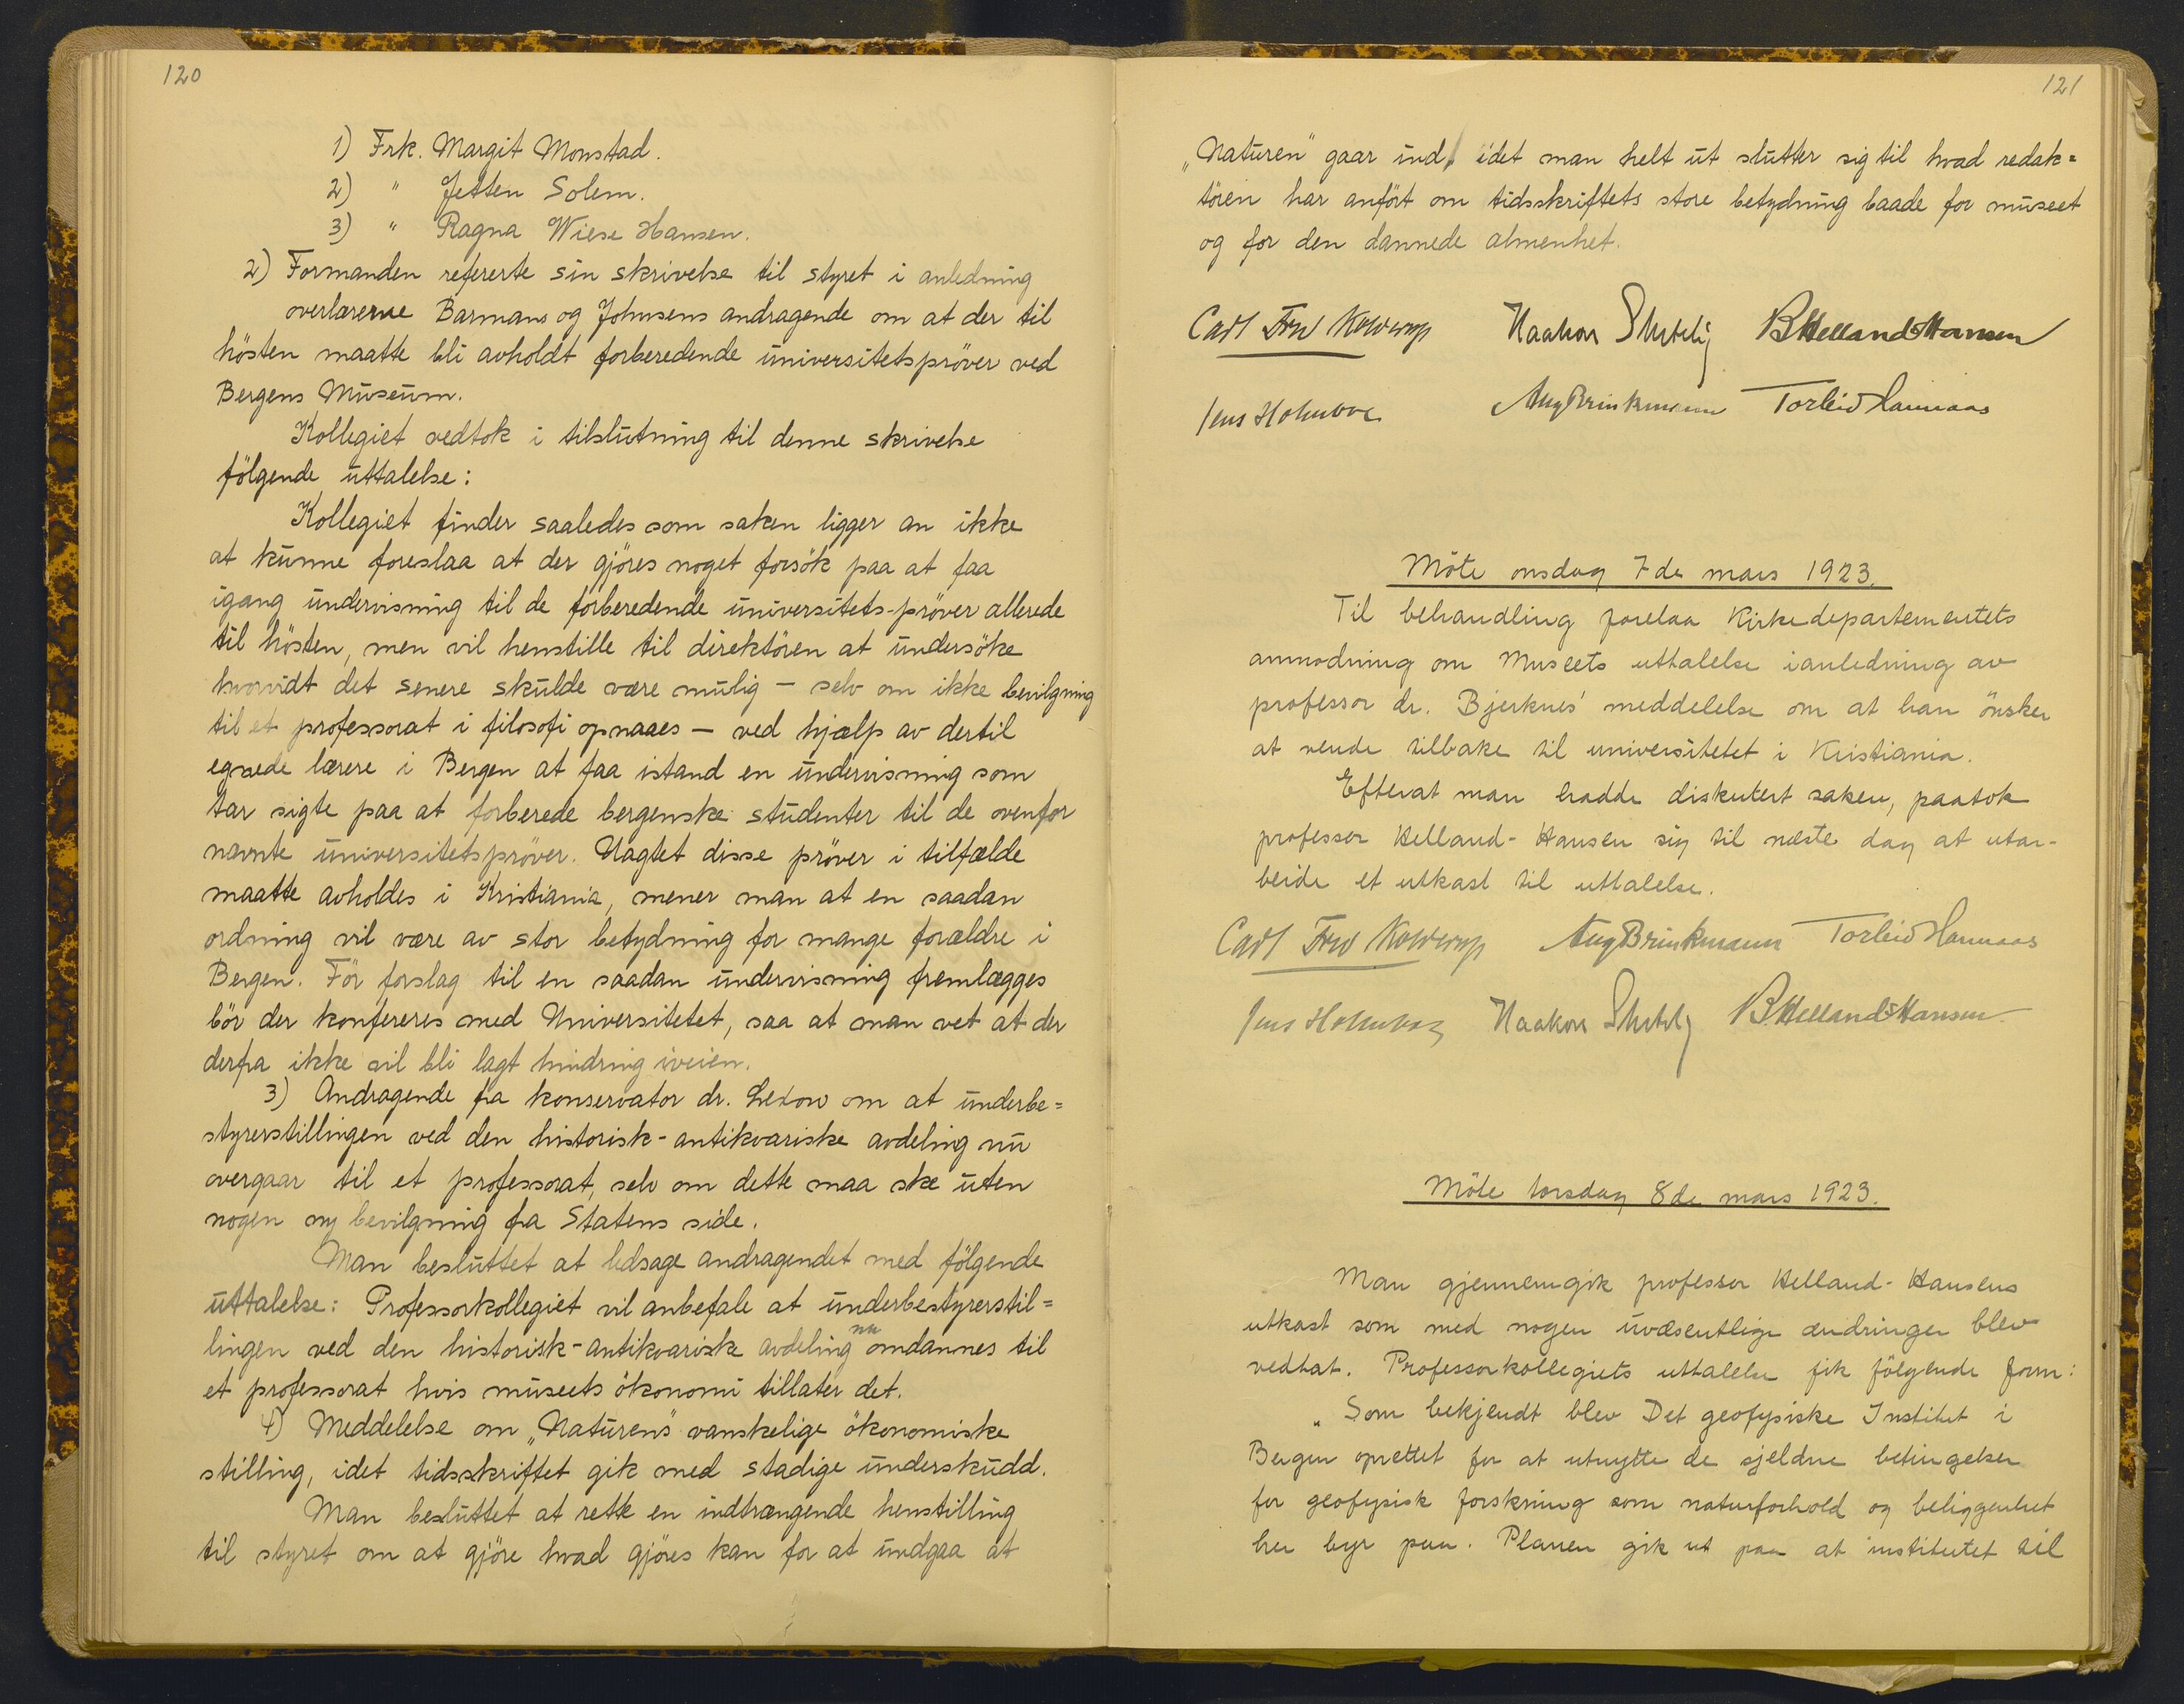 120
1) Frk. Margit Monstad.
2) " Jetten Solem.
3) " Ragna Wiese Hansen.
2) Formanden refererte sin skrivelse til styret i anledning
overlærerne Barmans og Johnsens andragende om at der til
hösten maatte bli avholdt forberedende universitetspröver ved
Bergens Museum.
Kollegiet vedtok i tilslutning til denne skrivelse
fölgende uttalelse:
Kollegiet finder saaledes som saken ligger an ikke
at kunne foreslaa at der gjöres noget forsök paa at faa
igang undervisning til de forberedende universitets-pröver allerede
til hösten, men vil henstille til direktören at undersöke
hvorvidt det senere skulde være mulig - selv om ikke bevilgning
til et professorat i filosofi opnaaes - ved hjælp av dertil
egnede lærere i Bergen at faa istand en undervisning som
tar sigte paa at forberede bergenske studenter til de ovenfor
nævnte universitetspröver. Uagtet disse pröver i tilfælde
maatte avholdes i Kristiania, mener man at en saadan
ordning vil være av stor betydning for mange forældre i
Bergen. För forslag til en saadan undervisning fremlægges
bör der konfereres med Universitetet, saa at man vet at der
derfra ikke vil bli lagt hindring iveien.
3) Andragende fra konservator dr. Lexow om at underbe=
styrerstillingen ved den historisk-antikvariske avdeling nu
overgaar til et professorat, selv om dette maa ske uten
nogen ny bevilgning fra Statens side.
Man besluttet at ledsage andragendet med fölgende
uttalelse: Professorkollegiet vil anbefale at underbestyrerstil=
lingen ved den historisk-antikvarisk avdeling nu omdannes til
et professorat hvis museets ökonomi tillater det.
4) Meddelelse om „Naturens" vanskelige ökonomiske
stilling, idet tidsskriftet gik med stadige underskudd.
Man besluttet at rette en indtrængende henstilling
til styret om at gjöre hvad gjöres kan for at undgaa at
121
„Naturen" gaar ind, idet man helt ut slutter sig til hvad redak=
tören har anfört om tidsskriftets store betydning baade for museet
og for den dannede almenhet.
Carl Fred Kolderup Haakon Shetelig B Helland-Hansen
Jens Holmboe Aug Brinkmann Torleiv Hannaas
Möte onsdag 7de mars 1923.
Til behandling forelaa Kirkedepartementets
anmodning om Museets uttalelse i anledning av
professor dr. Bjerknes' meddelelse om at han önsker
at vende tilbake til universitetet i Kristiania.
Efterat man hadde diskutert saken, paatok
professor Helland-Hansen sig til næste dag at utar-
beide et utkast til uttalelse.
Carl Fred Kolderup Aug Brinkmann Torleiv Hannaas
Jens Holmboe Haakon Shetelig B. Helland-Hansen
Möte torsdag 8de mars 1923.
Man gjennemgik professor Helland-Hansens
utkast som med nogen uvæsentlige ændringer blev
vedtat. Professorkollegiets uttalelse fik fölgende form:
„Som bekjendt blev Det geofysiske Institut i
Bergen oprettet for at utnytte de sjeldne betingelser
for geofysisk forskning som naturforhold og beliggenhet
her byr paa. Planen gik ut paa at institutet til